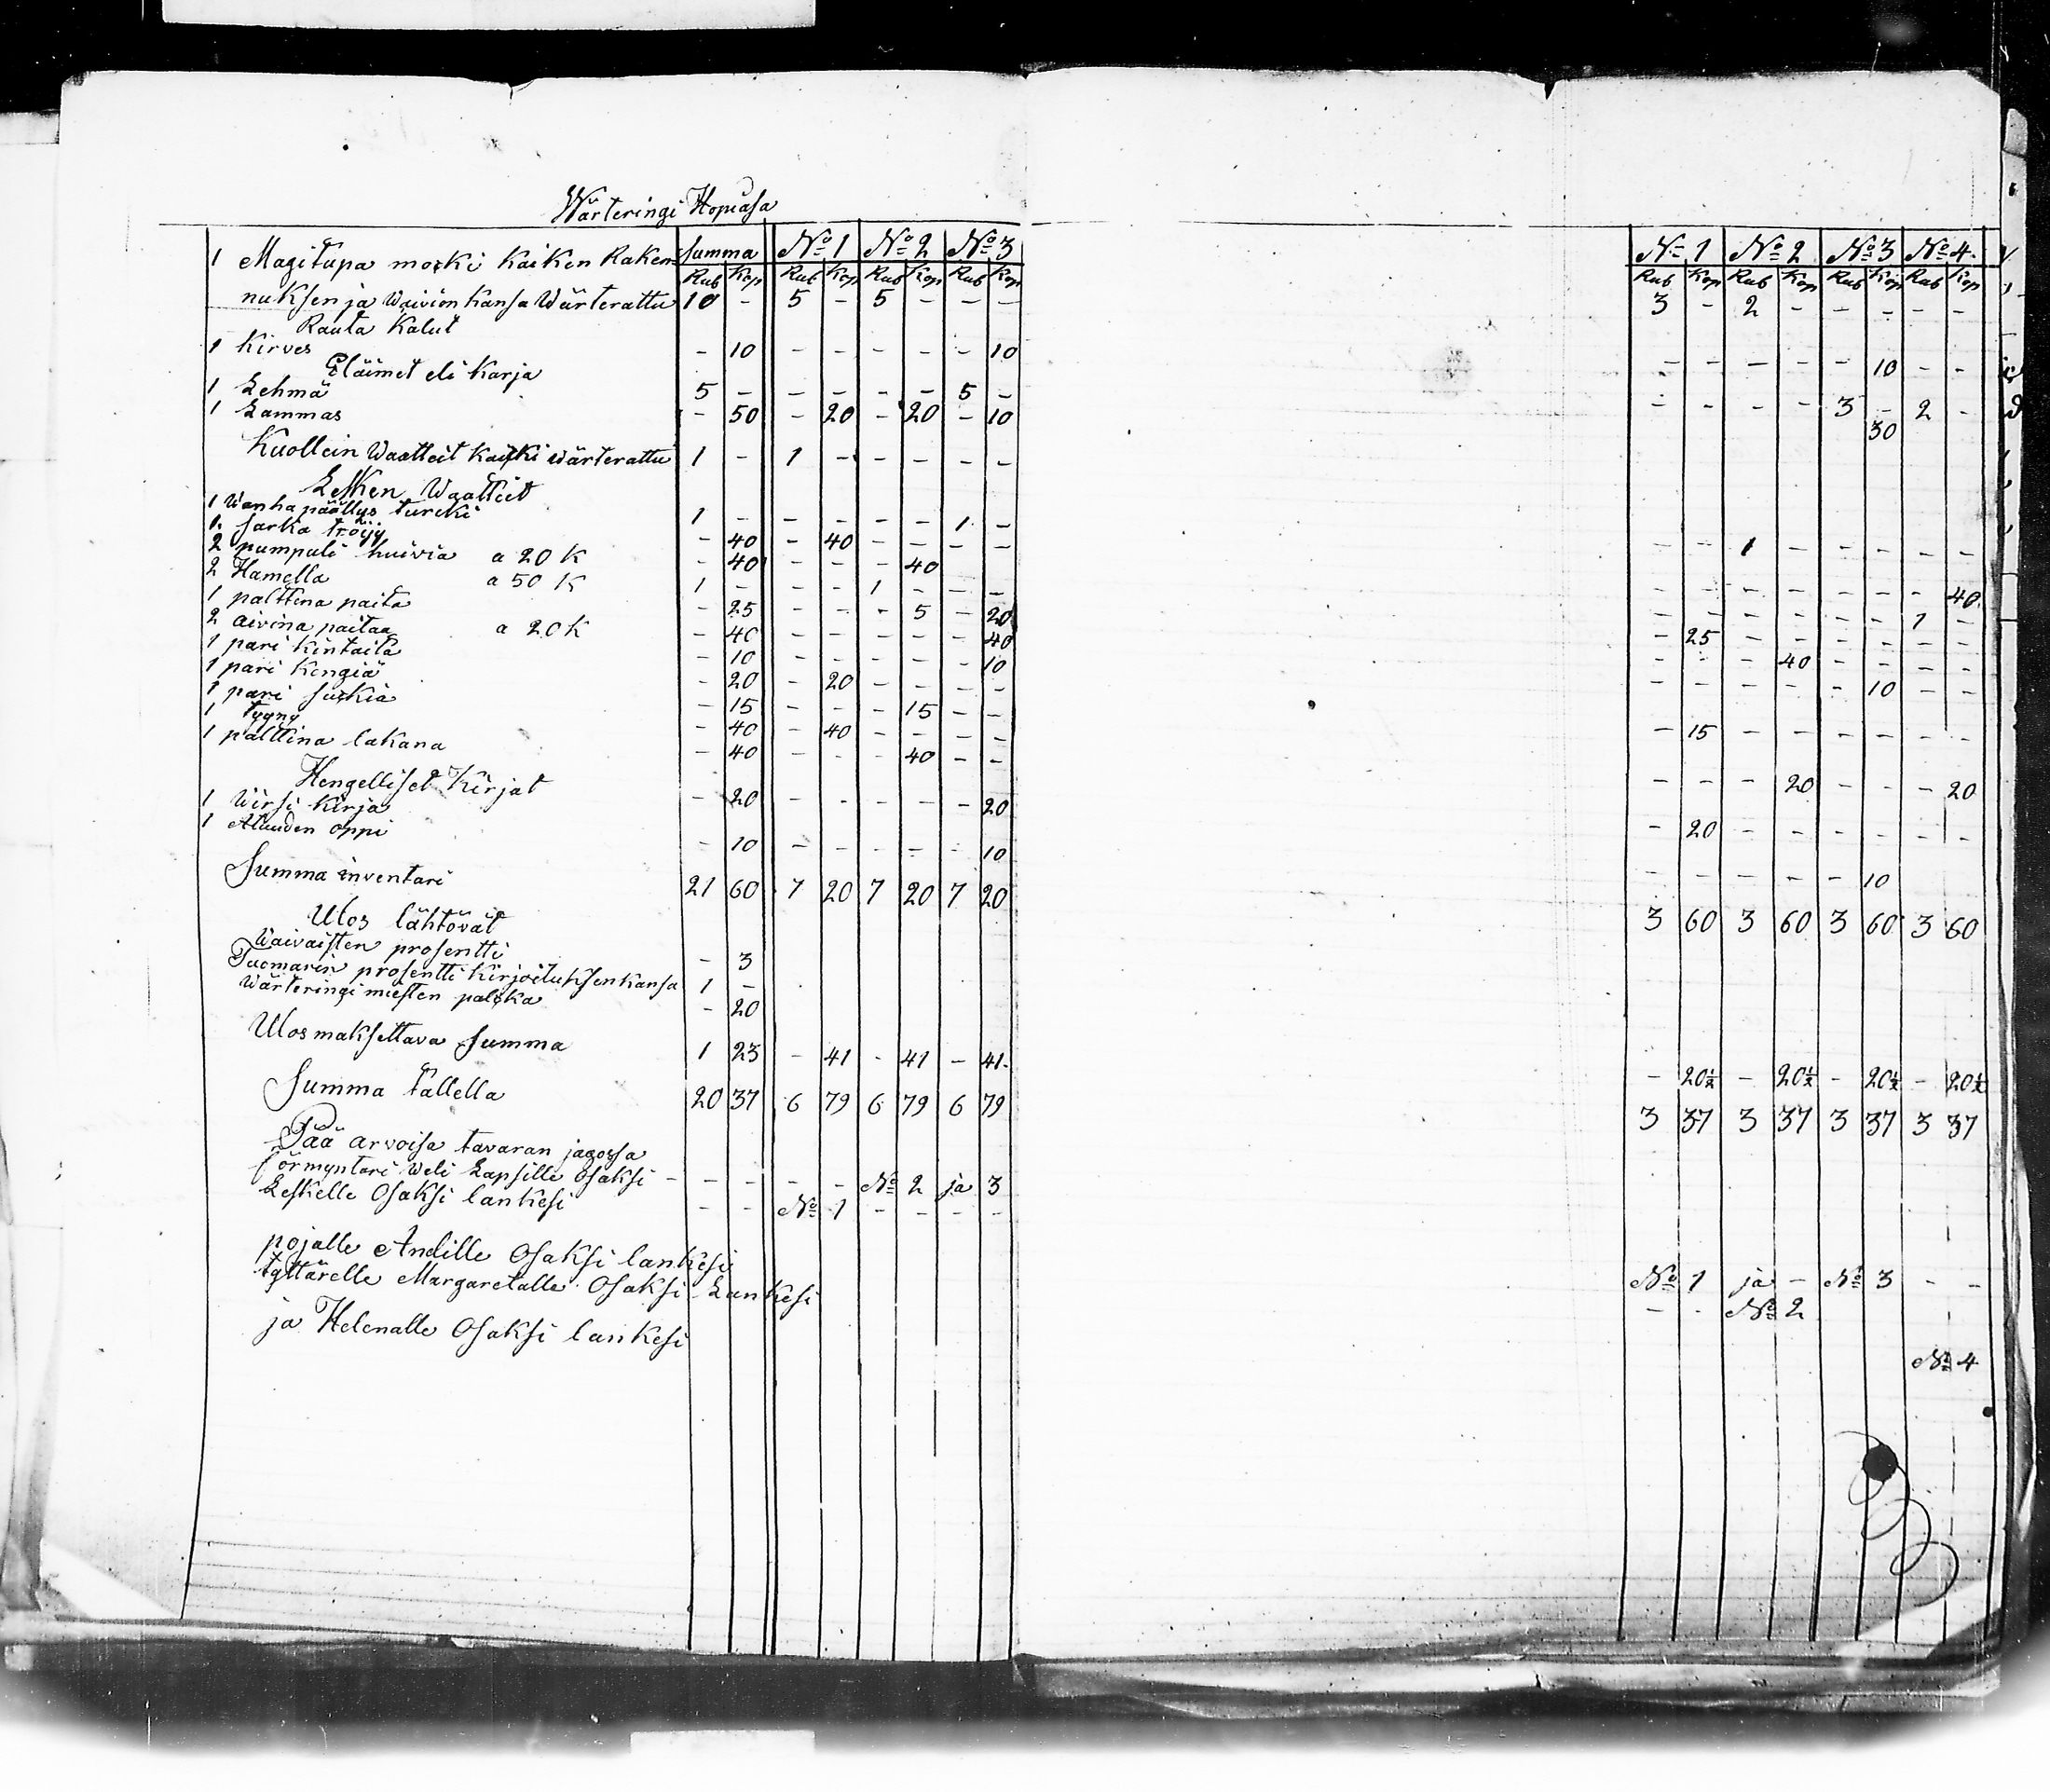 Wärteringi Hopiasa
Summa № 1 № 2 № 3 № 1 № 2 № 3 № 4
Rub Kop Rub Kop Rub Kop Rub Kop Rub Kop Rub Kop Rub Kop Rub Kop
1 Magitupa mocki kaiken Raken=
nuksen ja waivion kansa Wärterattu 10 - 5 - 5 - - - 3 - 2 - - - - -
Rauta Kalut
1 Kirves - 10 - - - - - 10 - - - - - 10 - -
Eläimet eli Karja
1 Lehmä 5 - - - - - 5 - - - - - 3 - 2 -
1 Lammas - 50 - 20 - 20 - 10 30
Kuollein Waatteit kaicki wärterattu 1 - 1 - - - - -
Lesken Waatteit
1 Wanha päällys turcki 1 - - - - - 1 - - - 1 - - - - -
1 Sarka tröijy - 40 - 40 - - - - - - - - - - - 40
2 pumpuli huivia a 20 K - 40 - - - 40 - - - - - - - - 1 -
2 Hamella a 50 K 1 - - - 1 - - - - 25 - - - - - -
1 palttina paita - 25 - - - 5 - 20 - - - 40 - - - -
2 aivina paitaa a 20 K - 40 - - - - - 40 - - - - - 10 - -
1 pari kintaita - 10 - - - - - 10
1 pari Kengiä - 20 - 20 - - - - - 15 - - - - - -
1 pari Suckia - 15 - - - 15 - -
1 tyyny - 40 - 40 - - - - - - - 20 - - - 20
1 palttina lakana - 40 - - - 40 - - - 20 - - - - - -
Hengelliset Kirjat
1 Wirsi kirja - 20 - - - - - 20
1 Atuuden oppi - 10 - - - - - 10 - - - - - 10
Summa inventari 21 60 7 20 7 20 7 20 3 60 3 60 3 60 3 60
Ulos lähtövät
Waivaisten prosentti - 3
Tuomarin prosentti kirjoituksen kansa 1 -
Wärteringi miesten palcka - 20
Ulos maksettava Summa 1 23 - 41 - 41 - 41 - 20½ - 20½ - 20½ - 20½
Summa tällella 20 37 6 79 6 79 6 79 3 37 3 37 3 37 3 37
Pää arvoisa tavaran jagossa
förmyntari weli Lapsille osaksi - - - - - № 2 ja 3
Leskelle Osaksi lankesi - - № 1 - - - -
pojalle Andille Osaksi lankesi № 1 ja - № 3 - -
tyttärelle Margaretalle Osaksi Lankesi - - № 2
ja Helenalle Osaksi lankesi № 4